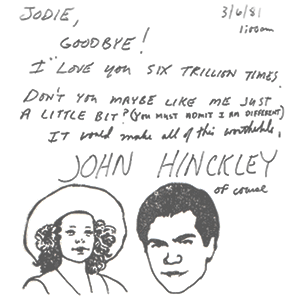 JODIE,
3/6/81
1:00am
GOODBYE!
I LOVE YOU SIX TRILLION TIMES.
DON'T YOU MAYBE LIKE ME JUST
A LITTLE BIT? (YOU MUST ADMIT I AM DIFFERENT)
IT would make all of this worthwhile,
JOHN HINCKLEY
of course